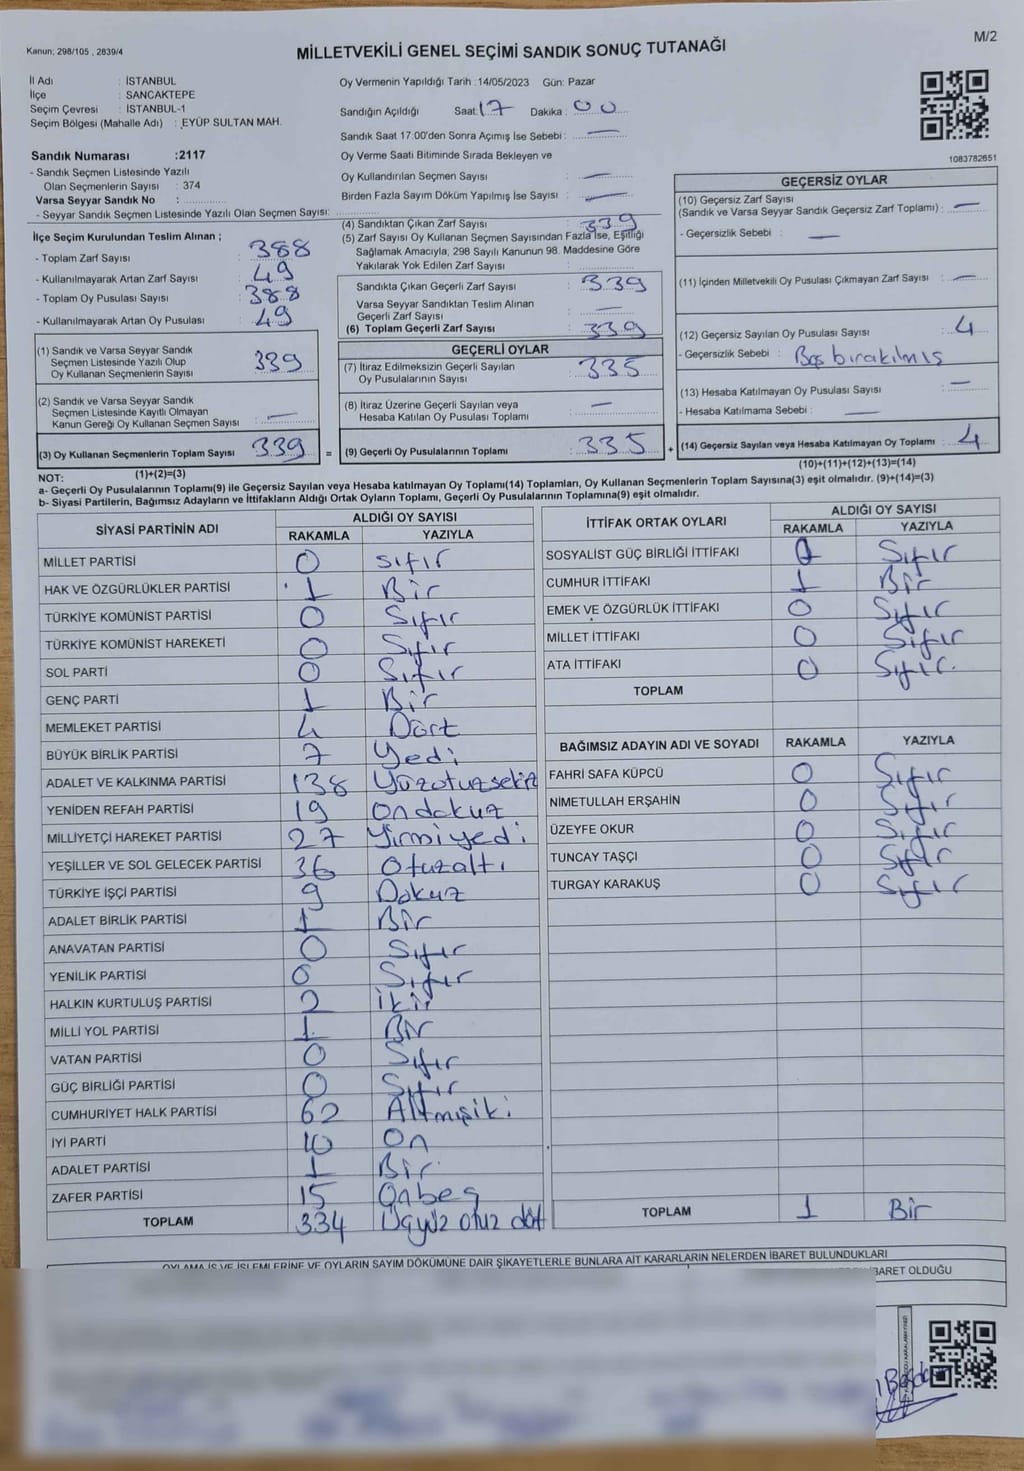 Kanun; 298/105 , 2839/4
MİLLETVEKİLİ GENEL SEÇİMİ SANDIK SONUÇ TUTANAĞI
M/2
İl Adı : İSTANBUL
İlçe : SANCAKTEPE
Seçim Çevresi : İSTANBUL-1
Seçim Bölgesi (Mahalle Adı) : EYÜP SULTAN MAH.
Oy Vermenin Yapıldığı Tarih :14/05/2023 Gün: Pazar
Sandığın Açıldığı Saat: 17 Dakika : 00
Sandık Saat 17.00'den Sonra Açımış İse Sebebi : —
Sandık Numarası :2117
- Sandık Seçmen Listesinde Yazılı
Olan Seçmenlerin Sayısı : 374
Varsa Seyyar Sandık No :
- Seyyar Sandık Seçmen Listesinde Yazılı Olan Seçmen Sayısı:
Oy Verme Saati Bitiminde Sırada Bekleyen ve
Oy Kullandırılan Seçmen Sayısı : —
Birden Fazla Sayım Döküm Yapılmış İse Sayısı : —
1083782651
İlçe Seçim Kurulundan Teslim Alınan ;
- Toplam Zarf Sayısı : 388
- Kullanılmayarak Artan Zarf Sayısı : 49
- Toplam Oy Pusulası Sayısı : 388
- Kullanılmayarak Artan Oy Pusulası : 49
(1) Sandık ve Varsa Seyyar Sandık
Seçmen Listesinde Yazılı Olup
Oy Kullanan Seçmenlerin Sayısı : 339
(2) Sandık ve Varsa Seyyar Sandık
Seçmen Listesinde Kayıtlı Olmayan
Kanun Gereği Oy Kullanan Seçmen Sayısı : —
(3) Oy Kullanan Seçmenlerin Toplam Sayısı : 339 =
(4) Sandıktan Çıkan Zarf Sayısı : 339
(5) Zarf Sayısı Oy Kullanan Seçmen Sayısından Fazla İse, Eşitliği
Sağlamak Amacıyla, 298 Sayılı Kanunun 98. Maddesine Göre
Yakılarak Yok Edilen Zarf Sayısı :
Sandıkta Çıkan Geçerli Zarf Sayısı : 339
Varsa Seyyar Sandıktan Teslim Alınan
Geçerli Zarf Sayısı : —
(6) Toplam Geçerli Zarf Sayısı : 339
GEÇERLİ OYLAR
(7) İtiraz Edilmeksizin Geçerli Sayılan
Oy Pusulalarının Sayısı : 335
(8) İtiraz Üzerine Geçerli Sayılan veya
Hesaba Katılan Oy Pusulası Toplamı : —
(9) Geçerli Oy Pusulalarının Toplamı : 335 +
GEÇERSİZ OYLAR
(10) Geçersiz Zarf Sayısı
(Sandık ve Varsa Seyyar Sandık Geçersiz Zarf Toplamı) : —
- Geçersizlik Sebebi : —
(11) İçinden Milletvekili Oy Pusulası Çıkmayan Zarf Sayısı : —
(12) Geçersiz Sayılan Oy Pusulası Sayısı : 4
- Geçersizlik Sebebi : Boş bırakılmış
(13) Hesaba Katılmayan Oy Pusulası Sayısı : —
- Hesaba Katılmama Sebebi : —
(14) Geçersiz Sayılan veya Hesaba Katılmayan Oy Toplamı : 4
(1)+(2)=(3)
(10)+(11)+(12)+(13)=(14)
NOT:
a- Geçerli Oy Pusulalarının Toplamı(9) ile Geçersiz Sayılan veya Hesaba katılmayan Oy Toplamı(14) Toplamları, Oy Kullanan Seçmenlerin Toplam Sayısına(3) eşit olmalıdır. (9)+(14)=(3)
b- Siyasi Partilerin, Bağımsız Adayların ve İttifakların Aldığı Ortak Oyların Toplamı, Geçerli Oy Pusulalarının Toplamına(9) eşit olmalıdır.
SİYASİ PARTİNİN ADI ALDIĞI OY SAYISI
RAKAMLA YAZIYLA
MİLLET PARTİSİ 0 sıfır
HAK VE ÖZGÜRLÜKLER PARTİSİ 1 Bir
TÜRKİYE KOMÜNİST PARTİSİ 0 Sıfır
TÜRKİYE KOMÜNİST HAREKETİ 0 Sıfır
SOL PARTİ 0 Sıfır
GENÇ PARTİ 1 Bir
MEMLEKET PARTİSİ 4 Dört
BÜYÜK BİRLİK PARTİSİ 7 Yedi
ADALET VE KALKINMA PARTİSİ 138 Yüzotuzsekiz
YENİDEN REFAH PARTİSİ 19 ondokuz
MİLLİYETÇİ HAREKET PARTİSİ 27 Yirmiyedi
YEŞİLLER VE SOL GELECEK PARTİSİ 36 Otuzaltı
TÜRKİYE İŞÇİ PARTİSİ 9 Dokuz
ADALET BİRLİK PARTİSİ 1 Bir
ANAVATAN PARTİSİ 0 Sıfır
YENİLİK PARTİSİ 0 Sıfır
HALKIN KURTULUŞ PARTİSİ 2 iki
MİLLİ YOL PARTİSİ 1 Bir
VATAN PARTİSİ 0 Sıfır
GÜÇ BİRLİĞİ PARTİSİ 0 Sıfır
CUMHURİYET HALK PARTİSİ 62 Altmışiki
İYİ PARTİ 10 On
ADALET PARTİSİ 1 Bir
ZAFER PARTİSİ 15 Onbeş
TOPLAM 334 Üçyüz otuz dört
İTTİFAK ORTAK OYLARI ALDIĞI OY SAYISI
RAKAMLA YAZIYLA
SOSYALİST GÜÇ BİRLİĞİ İTTİFAKI 0 Sıfır
CUMHUR İTTİFAKI 1 Bir
EMEK VE ÖZGÜRLÜK İTTİFAKI 0 Sıfır
MİLLET İTTİFAKI 0 Sıfır
ATA İTTİFAKI 0 Sıfır.
TOPLAM
BAĞIMSIZ ADAYIN ADI VE SOYADI RAKAMLA YAZIYLA
FAHRİ SAFA KÜPCÜ 0 Sıfır
NİMETULLAH ERŞAHİN 0 Sıfır
ÜZEYFE OKUR 0 Sıfır
TUNCAY TAŞÇI 0 Sıfır
TURGAY KARAKUŞ 0 Sıfır
TOPLAM 1 Bir
OYLAMA İŞ VE İŞLEMLERİNE VE OYLARIN SAYIM DÖKÜMÜNE DAİR ŞİKAYETLERLE BUNLARA AİT KARARLARIN NELERDEN İBARET BULUNDUKLARI
İBARET OLDUĞU